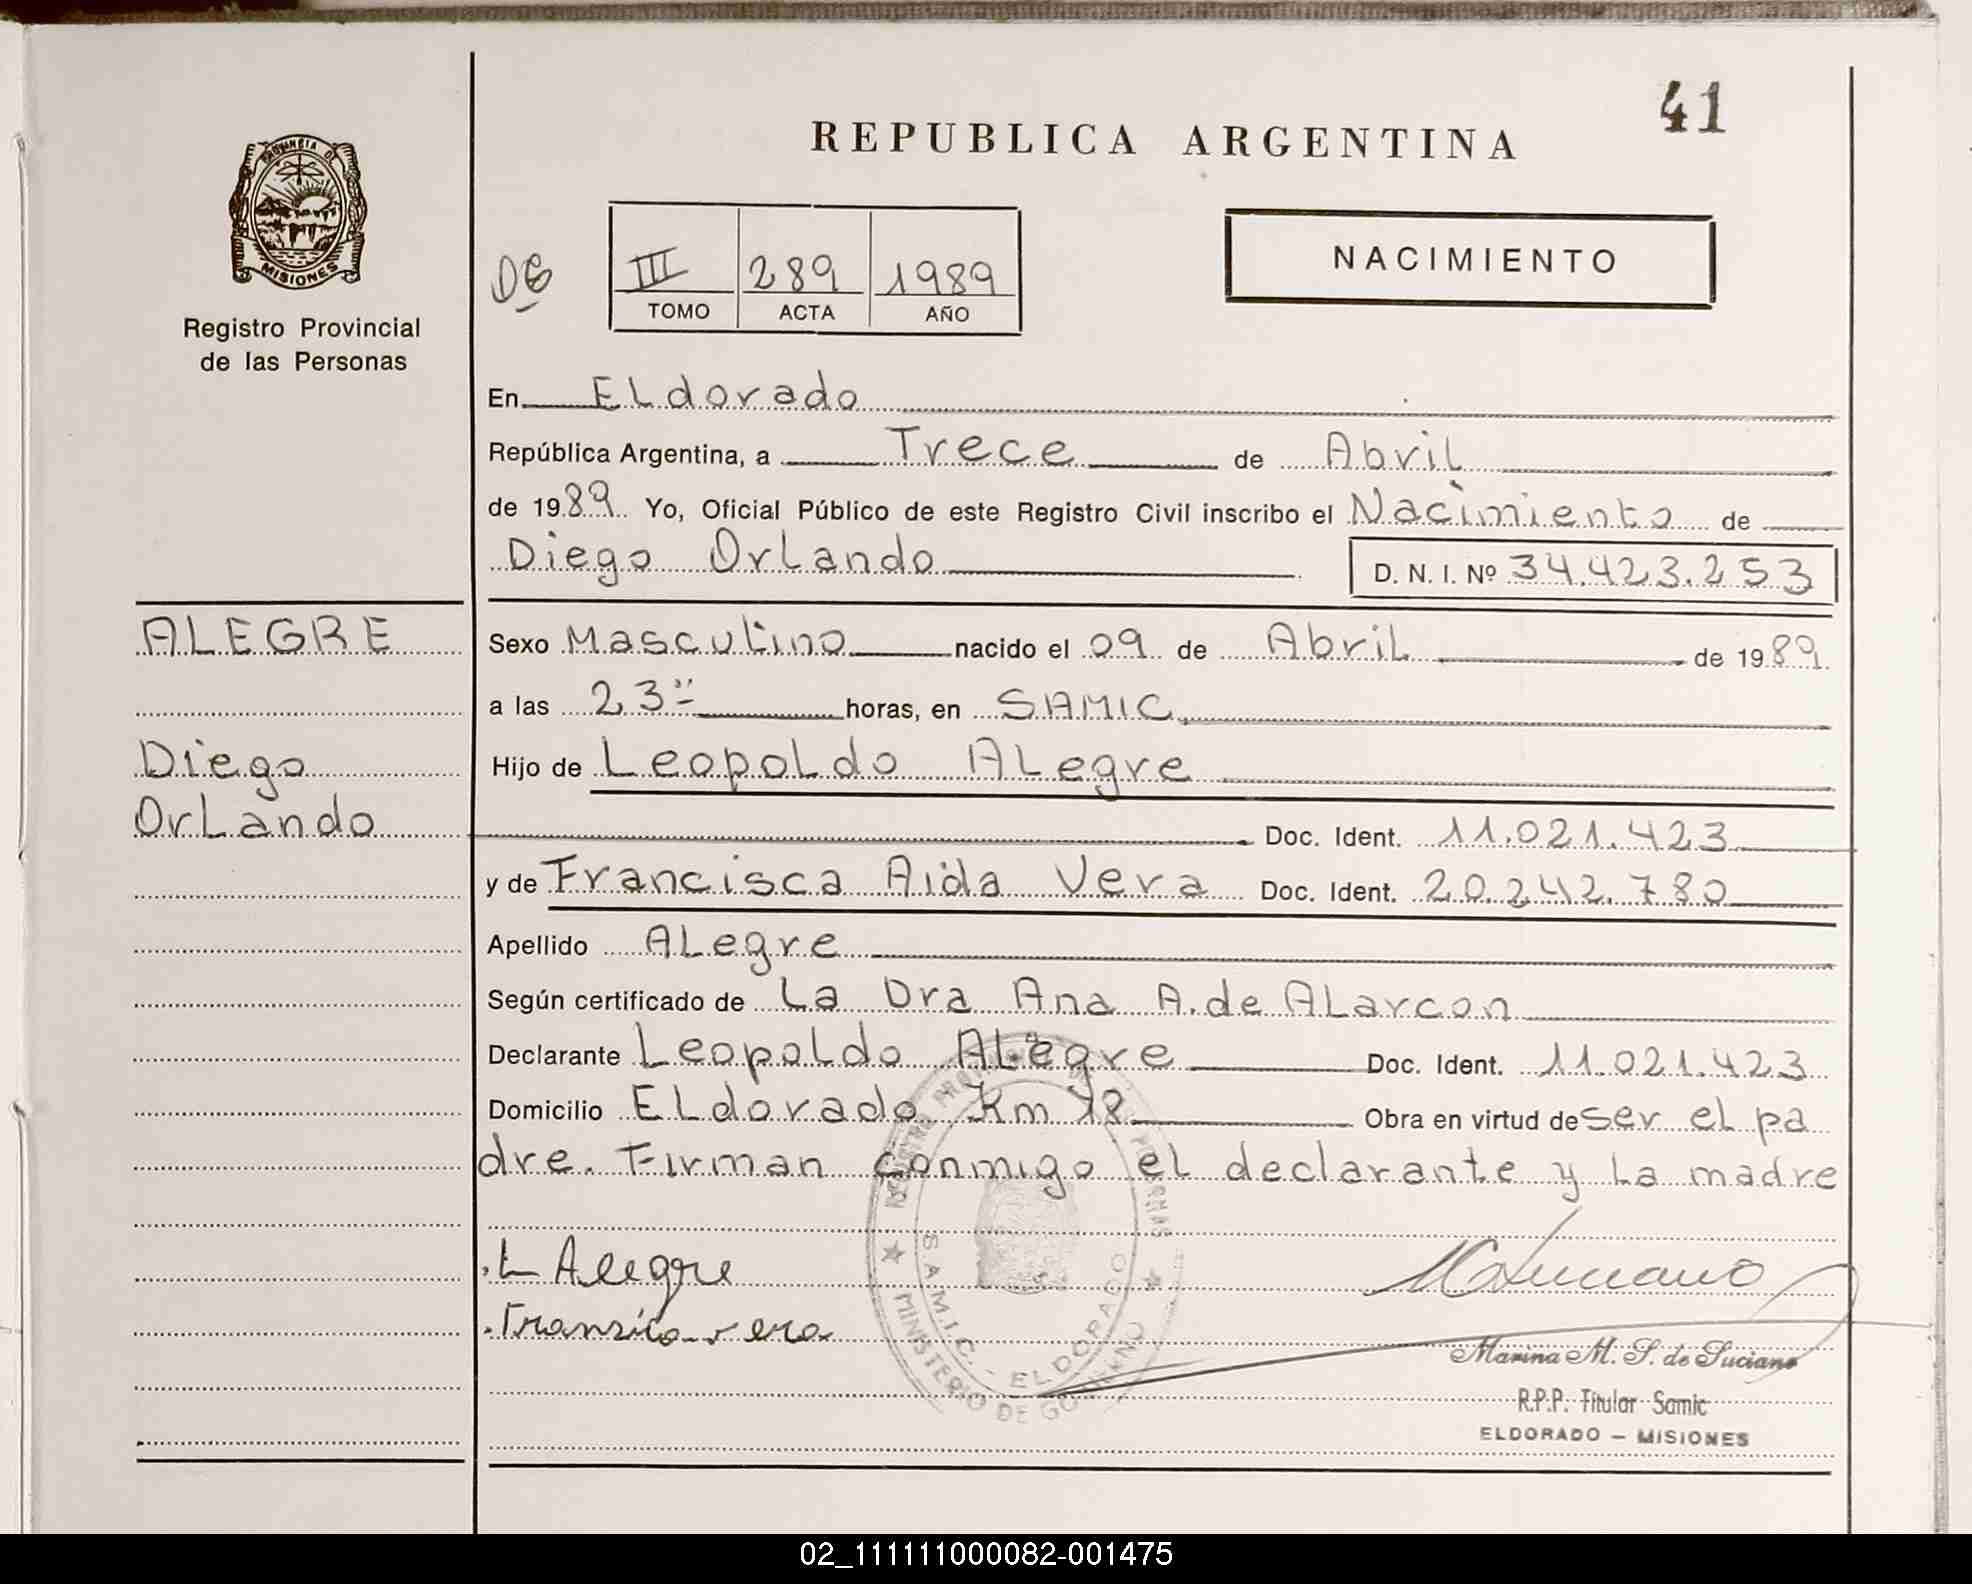 41
REPUBLICA ARGENTINA
PROVINCIA DE
MISIONES
Registro Provincial
de las Personas
III 289 1989
TOMO ACTA AÑO
NACIMIENTO
En Eldorado
República Argentina, a Trece de Abril
de 1989 Yo, Oficial Público de este Registro Civil inscribo el Nacimiento de
Diego Orlando D. N. I. Nº 34.423.253
ALEGRE
Diego
Orlando
Sexo Masculino nacido el 09 de Abril de 1989
a las 23 horas, en SAMIC
Hijo de Leopoldo Alegre
Doc. Ident. 11.021.423
y de Francisca Aida Vera Doc. Ident. 20.242.780
Apellido Alegre
Según certificado de La Dra Ana A. de Alarcon
Declarante Leopoldo Alegre Doc. Ident. 11.021.423
Domicilio Eldorado Km 18 Obra en virtud de ser el pa
dre. Firman conmigo el declarante y la madre
L Alegre
vera
S.A.M.I.C. - ELDORADO
MINISTERIO DE GOBIERNO
Marina M. S. de Luciano
R.P.P. Titular Samic
ELDORADO - MISIONES
02_111111000082-001475